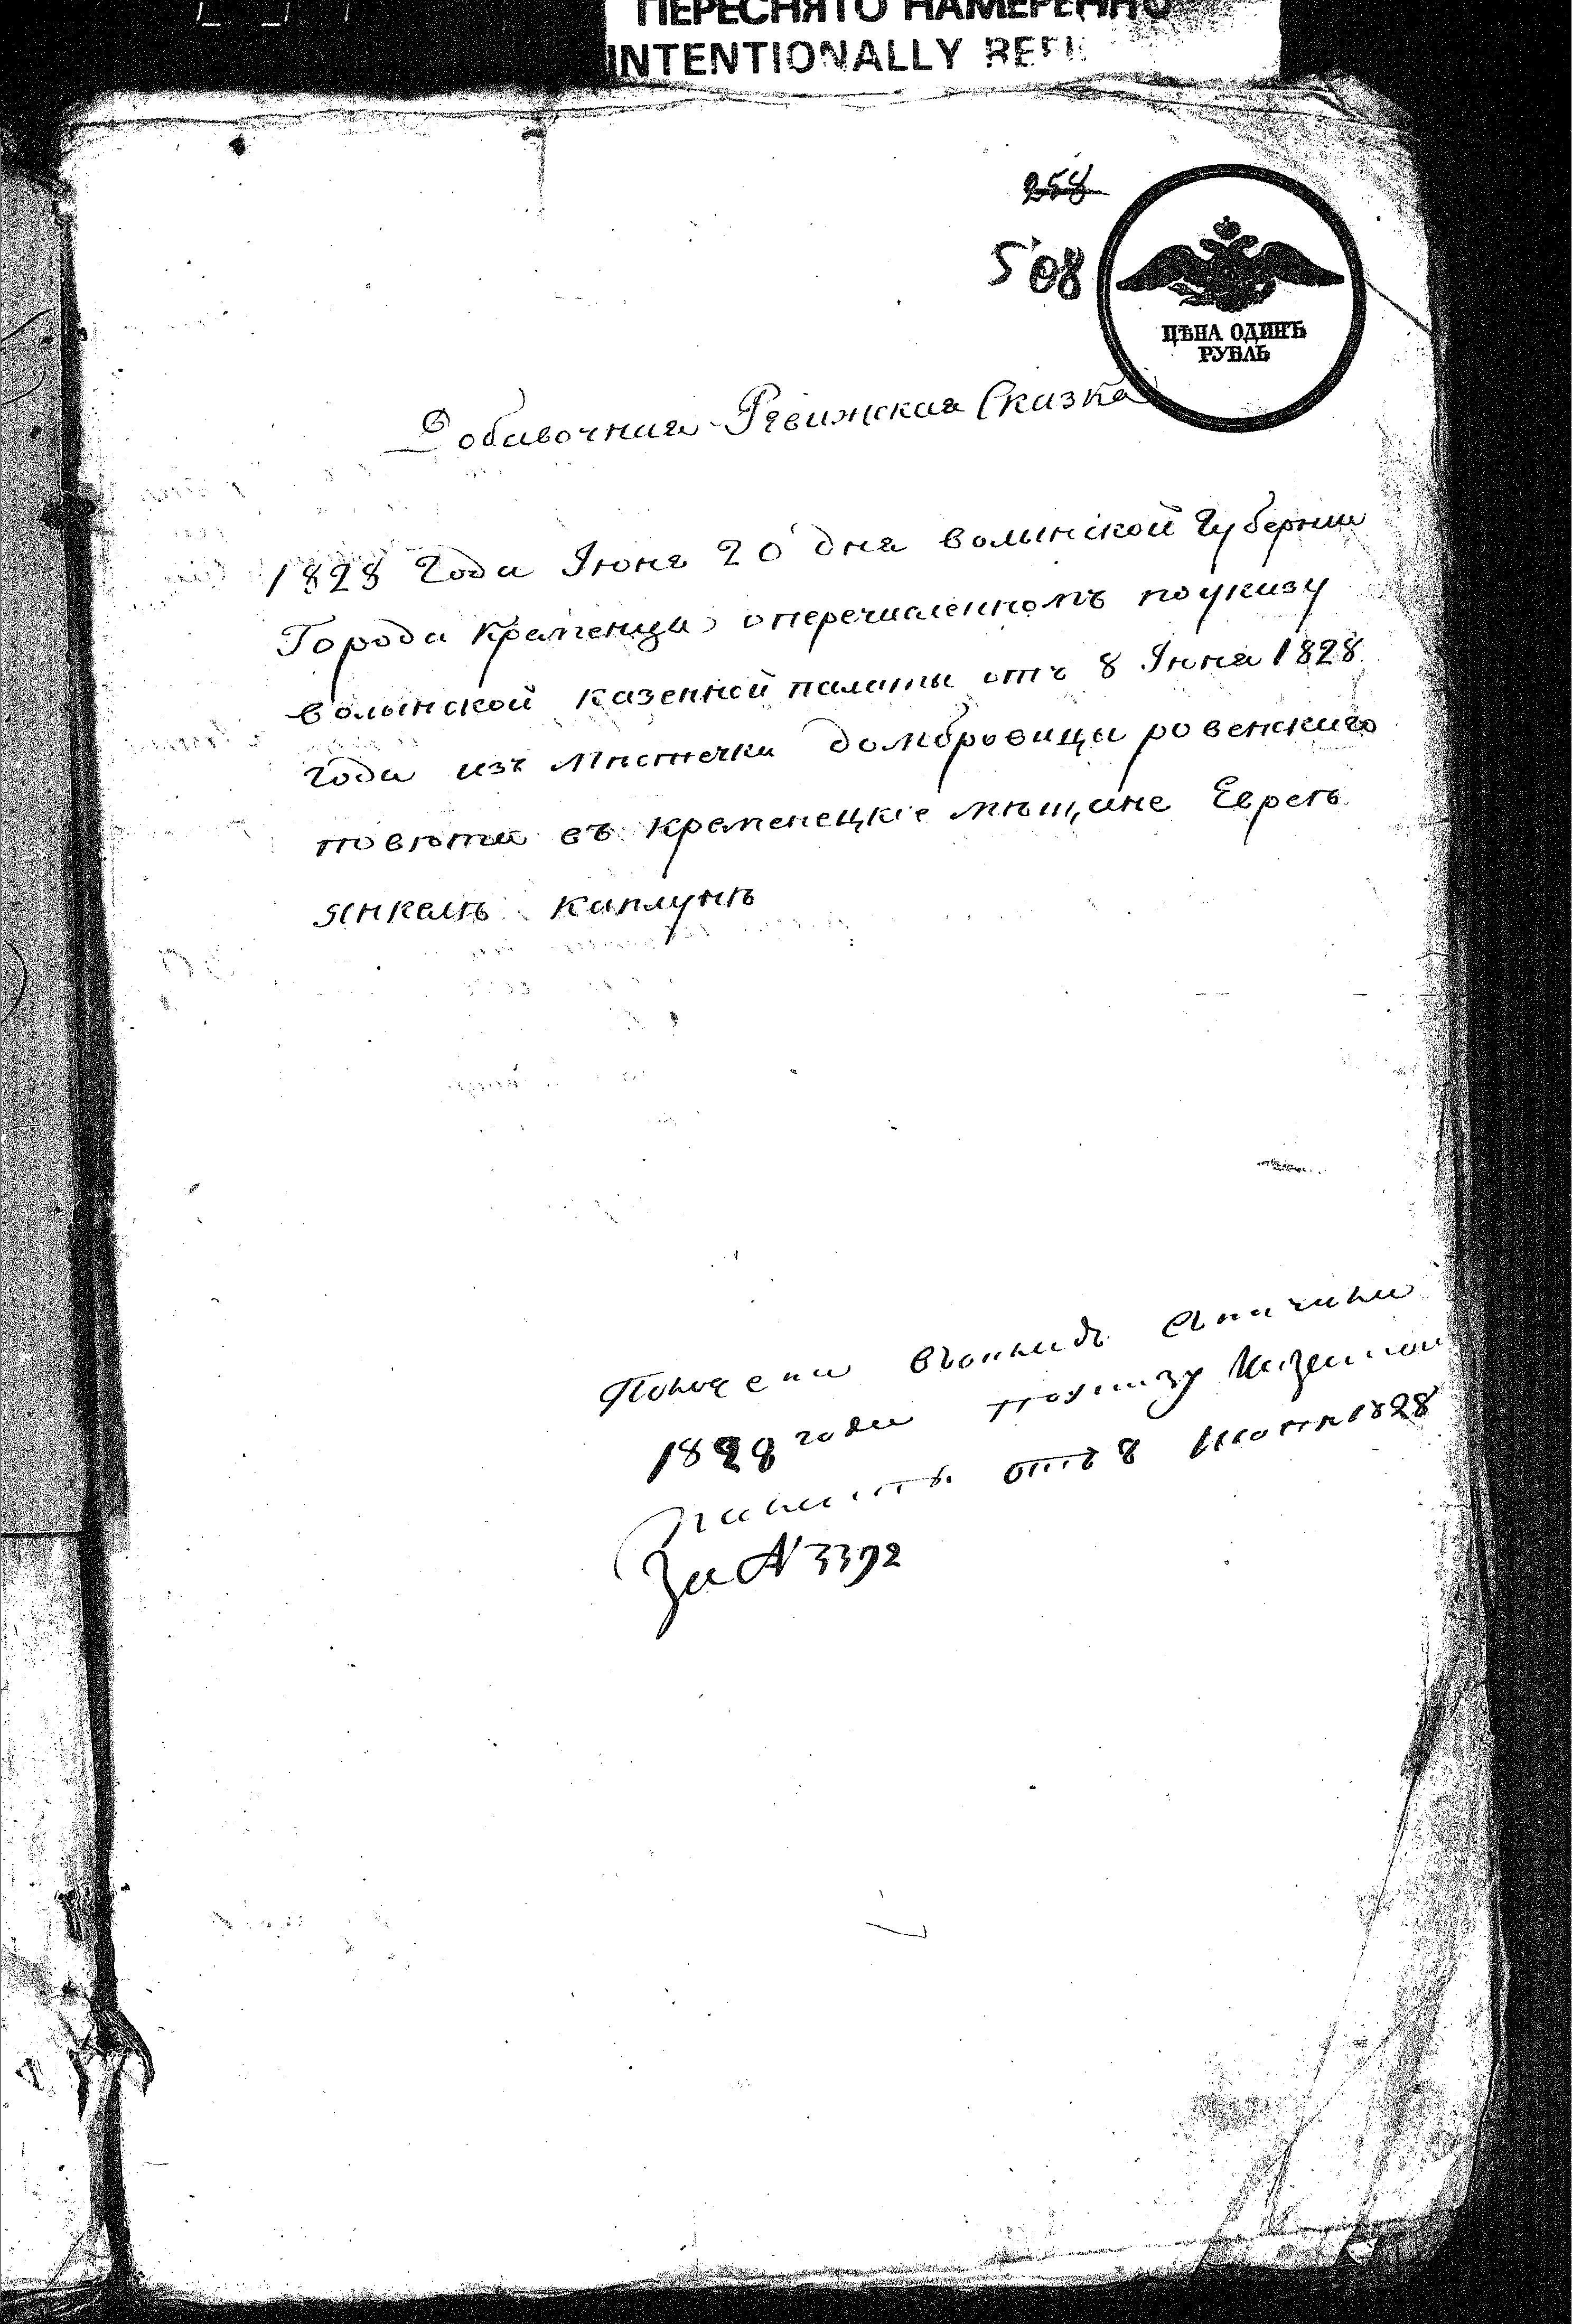 ПЕРЕСНЯТО НАМЕРЕННО
INTENTIONALLY
258
508
ЦѢНА ОДИНЪ
РУБЛЬ
Добавочная Ревижская Сказка
1828 Года Іюня 20 дня волынской Губернии
Города Кременца о перечисленномъ по указу
волынской казенной палаты отъ 8 Іюня 1828
года изъ Мѣстечка домбровицы ровенскаго
повѣта въ кременецкіе мѣщане Еврею
янкель каплунъ
1828 года по указу Казенной
палаты отъ 8 Июня 1828
За N 3392